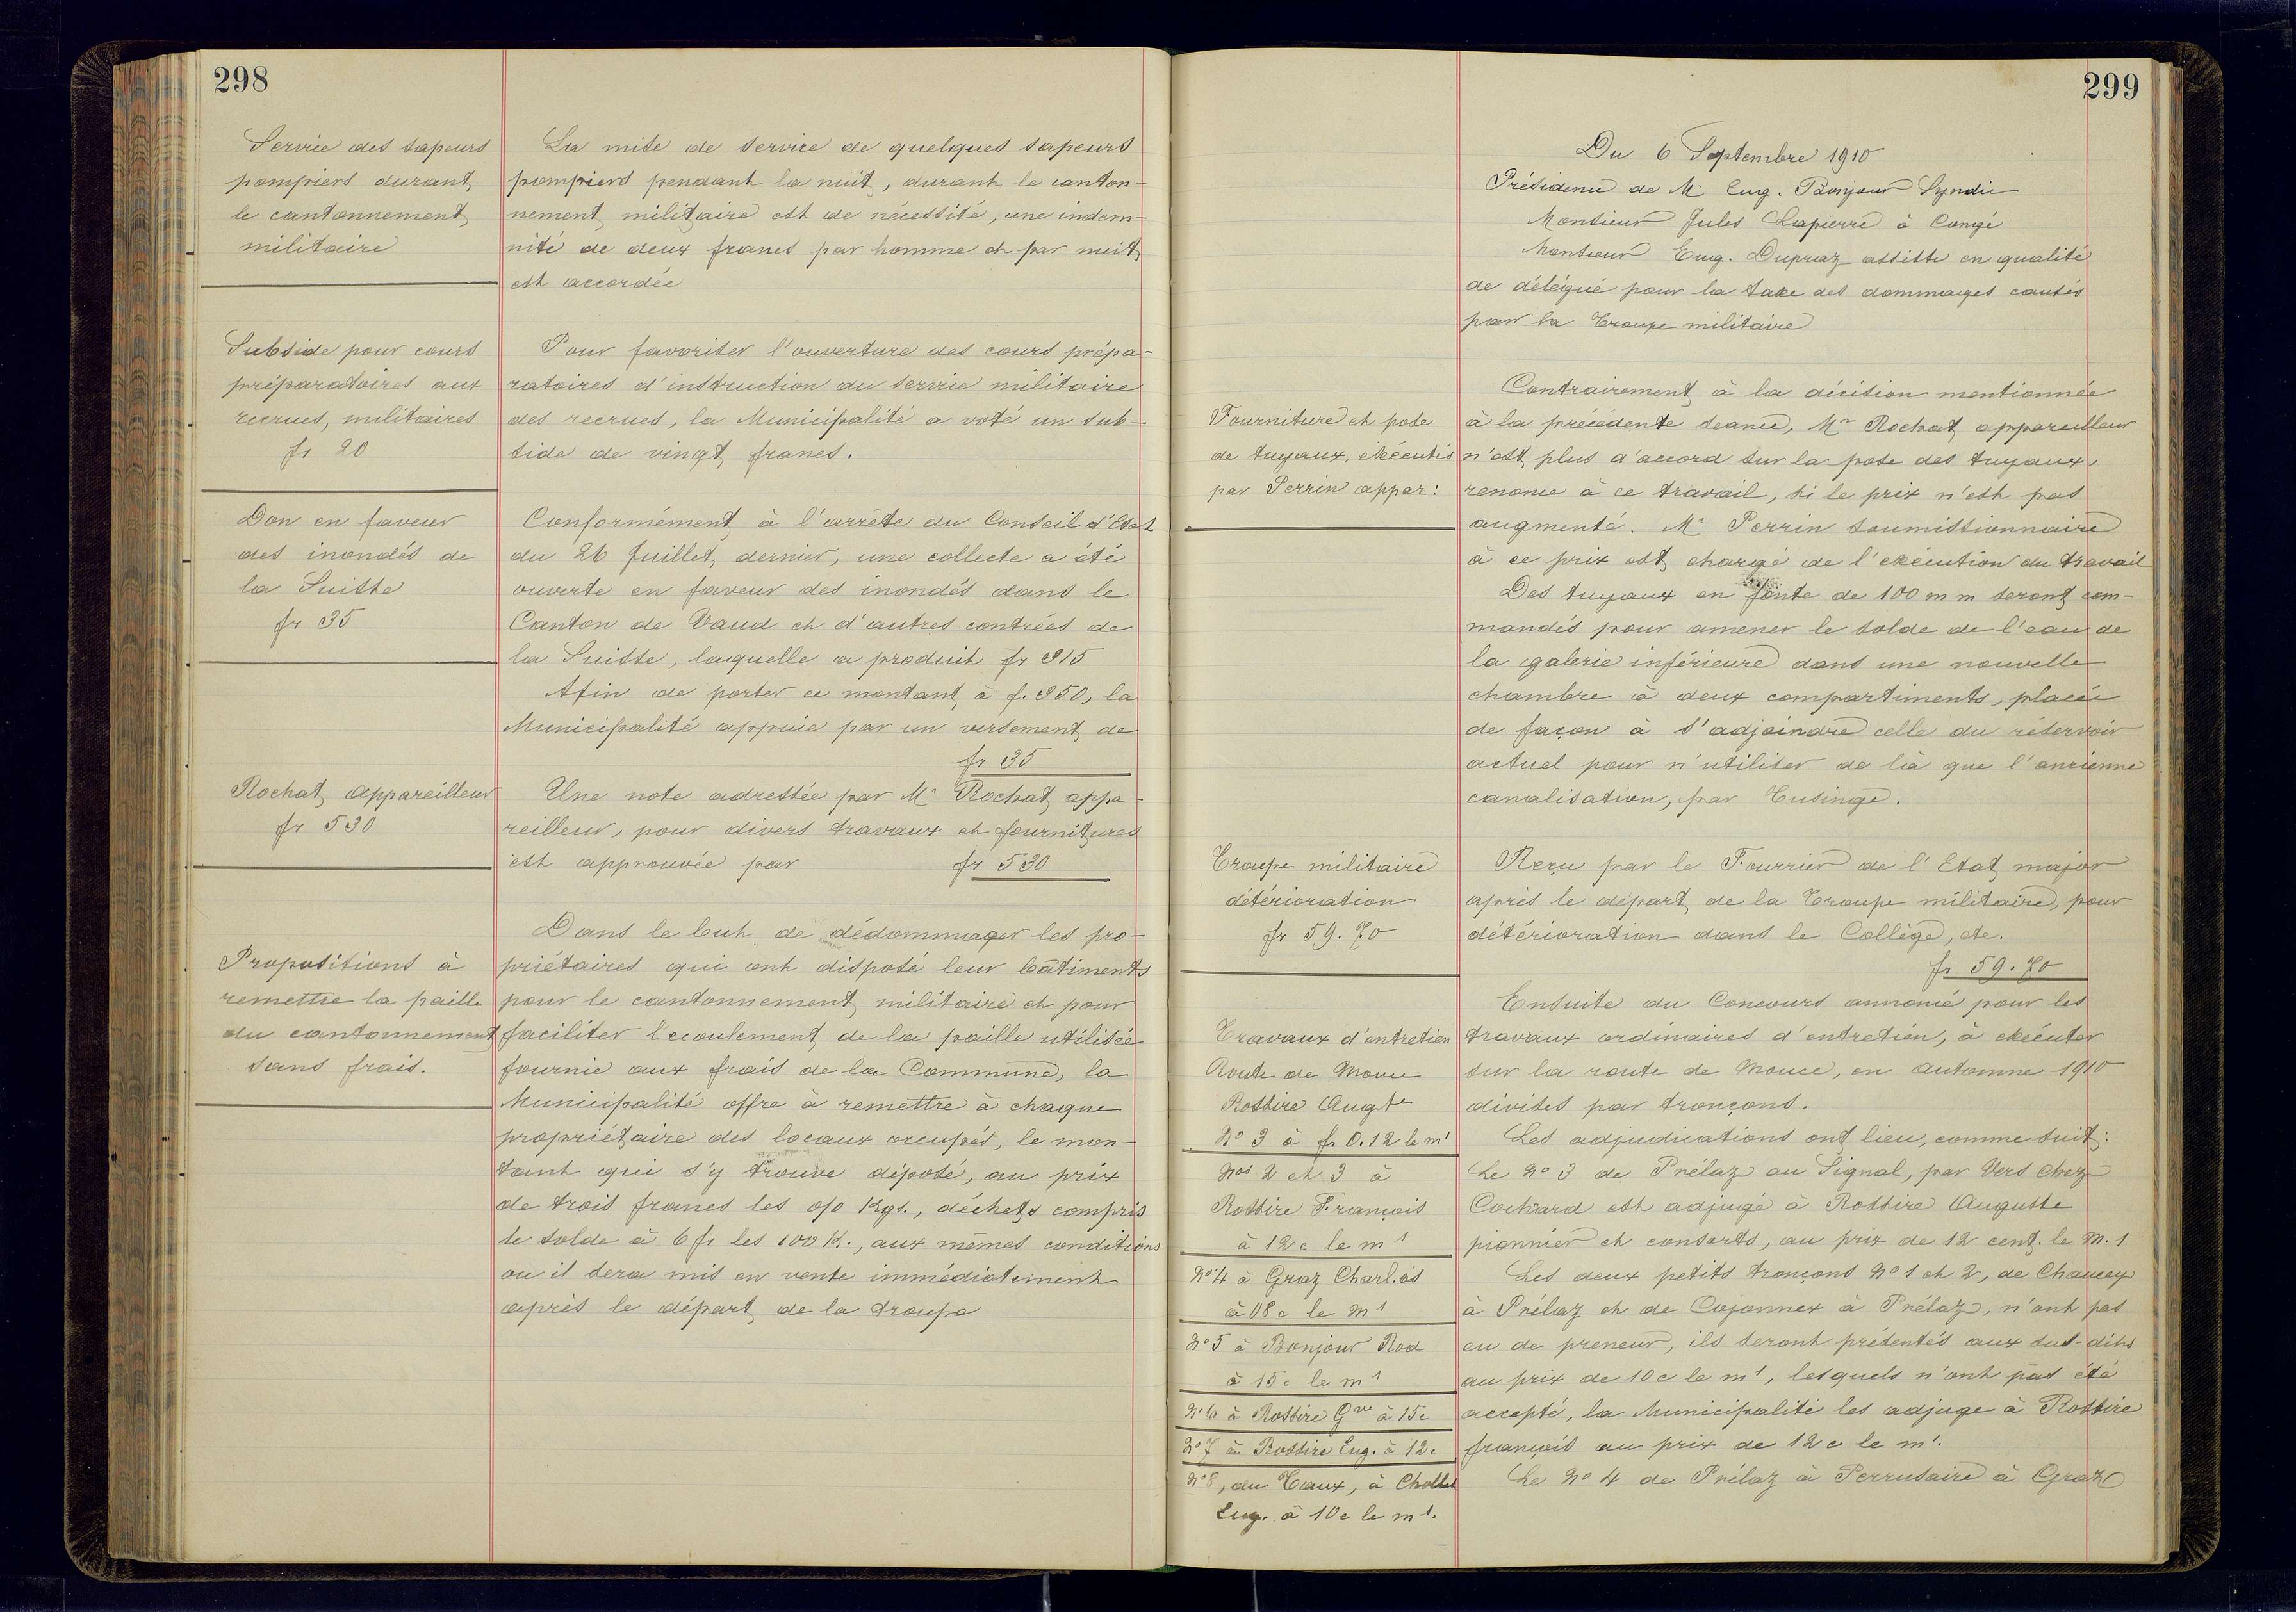 298
Service des sapeurs
pompiers durant
le cantonnement
militaire
La mise de service de quelques sapeurs
pompiers pendant la nuit, durant le canton-
nement militaire est de nécessité, une indem-
nité de deux francs par homme et par nuit
est accordée
Subside pour cours
préparatoires aux
recrues, militaires
fr 20
Pour favoriser l'ouverture des cours prépa-
ratoires d'instruction du service militaire
des recrues, la Municipalité a voté un sub-
side de vingt francs.
Don en faveur
des inondés de
la Suisse
fr 35
Conformément à l'arrête du Conseil d'Etat
du 26 Juillet dernier, une collecte a été
ouverte en faveur des inondés dans le
Canton de Vaud et d'autres contrées de
la Suisse, laquelle a produit fr 915
Afin de porter ce montant à f. 950, la
Municipalité appuie par un versement de
fr 35
Rochat appareilleur
fr 530
Une note adressée par Mr Rochat appa-
reilleur, pour divers travaux et fournitures
est approuvée par fr 530
Propositions à
remettre la paille
du cantonnement
sans frais.
Dans le but de dédommager les pro-
priétaires qui ont disposé leur bâtiments
pour le cantonnement militaire et pour
faciliter lecoulement de la paille utilisée
fournie aux frais de la Commune, la
Municipalité offre à remettre à chaque
propriétaire des locaux occupés, le mon-
tant qui s'y trouve déposé, au prix
de trois francs les o/o Kgs., déchets compris
le solde à 6 fr les 100 K., aux mêmes conditions
ou il sera mis en vente immédiatement
après le départ de la troupe
299
Du 6 Septembre 1910
Présidence de Mr Eug. Bonjour Syndic
Monsieur Jules Lapierre à Congé
Monsieur Eug. Dupraz assiste en qualité
de délégué pour la taxe des dommages causés
par la Troupe militaire
Fourniture et pose
de tuyaux, exécutés
par Perrin appar:
Contrairement à la décision mentionnée
à la précédente seance, Mr Rochat appareilleur
n'est plus d'accord sur la pose des tuyaux,
renonce à ce travail, si le prix n'est pas
augmenté. Mr Perrin soumissionnaire
à ce prix est chargé de l'exécution du travail
Des tuyaux en fonte de 100 m m seront com-
mandés pour amener le solde de l'eau de
la galerie inférieure dans une nouvelle
chambre à deux compartiments, placée
de façon à s'adjoindre celle du réservoir
actuel pour n'utiliser de là que l'ancienne
canalisation, par Eusinge.
Troupe militaire
détérioration
fr 59.70
Reçu par le Fourrier de l'Etat major
après le départ de la Troupe militaire, pour
détérioration dans le Collège, etc.
fr 59.70
Travaux d'entretien
Route de Mouce
Rossire Augte
No 3 à fr 0.12 le m1
Nos 2 et 3 à
Rossire François
à 12 c le m1
No 4 à Graz Charles
à 08 c le m1
No 5 à Bonjour Rod
à 15 c le m1
No 6 à Rossire Gve à 15c
No 7 à Rossire Eug. à 12c
No 8, du Taux, à Chollet
Eug. à 10 c le m1.
Ensuite du Concours annoncé pour les
travaux ordinaires d'entretien, à exécuter
sur la route de Mouce, en Automne 1910
divisés par tronçons.
Les adjudications ont lieu, comme suit:
Le No 3 de Prélaz au Signal, par Vers chez
Cochard est adjugé à Rossire Auguste
pionnier et consorts, au prix de 12 cent. le m.1
Les deux petits tronçons No 1 et 2, de Chaucey
à Prélaz et de Cojonnex à Prélaz, n'ont pas
eu de preneur, ils seront présentés aux sus-dits
au prix de 10 c le m1, lesquels n'ont pas été
accepté, la Municipalité les adjuge à Rossire
françois au prix de 12 c le m1.
Le No 4 de Prélaz à Perrusaire à Graz